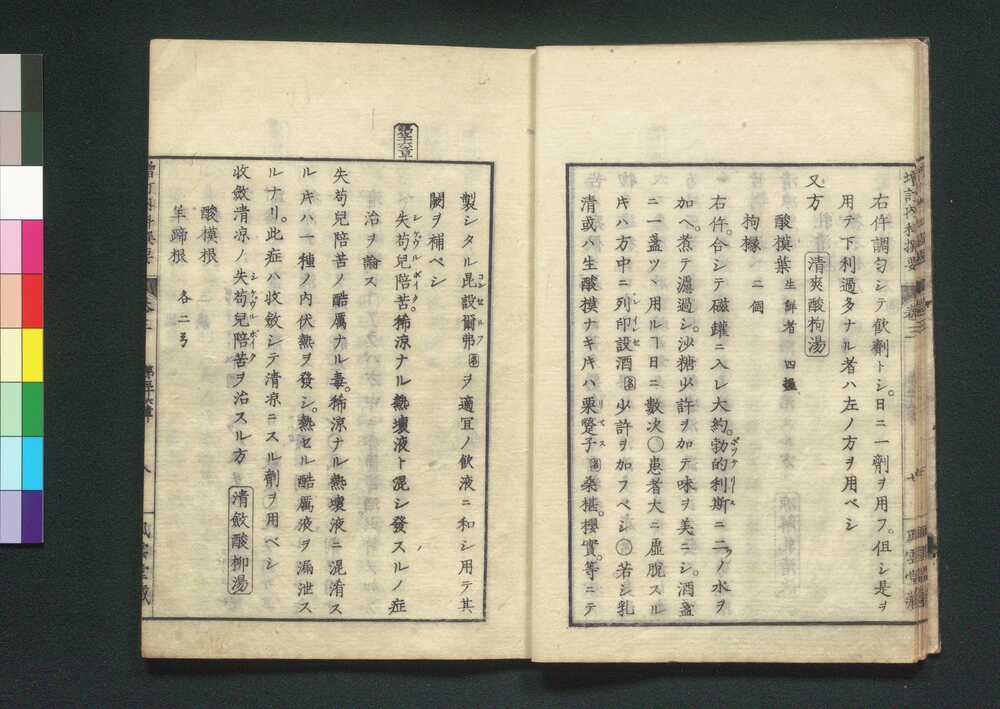 右件調匀シテ飲劑トシ。日ニ一劑ヲ用フ。但シ是ヲ
用テ下利過多ナル者ハ左ノ方ヲ用ベシ
又方 清爽酸枸湯
酸摸葉 生鮮者 四握
枸櫞 二個
右件。合シテ磁罐ニ入レ大約。勃的利斯ニ二ツノ水ヲ
加ヘ。煮テ濾過シ。沙糖少許ヲ加テ味ヲ美ニシ。酒盞
ニ一盞ツヽ用ルヿ日ニ數次〇患者大ニ虚脱スル
キハ方中ニ列印設酒 少許ヲ加フベシ〇若シ乳
清或ハ生酸摸ナキ𪜈ハ栗蹙子 桑椹。櫻實。等ニテ
製シタル昆設爾弗 ヲ適宜ノ飲液ニ和シ用テ其
闕ヲ補ベシ
失苟兒陪苦。稀涼ナル熱壞液ト混シ發スルノ症
治ヲ論ス
失苟兒陪苦ノ酷厲ナル毒。稀涼ナル熱壞液ニ混淆ス
ル𪜈ハ一種ノ内伏熱ヲ發シ。熱セル酷厲液ヲ漏泄ス
ルナリ。此症ハ收斂シテ清涼ニスル劑ヲ用ベシ
收斂清凉ノ失苟兒陪苦ヲ治スル方 清斂酸柳湯
酸模根
羊蹄根 各二弓